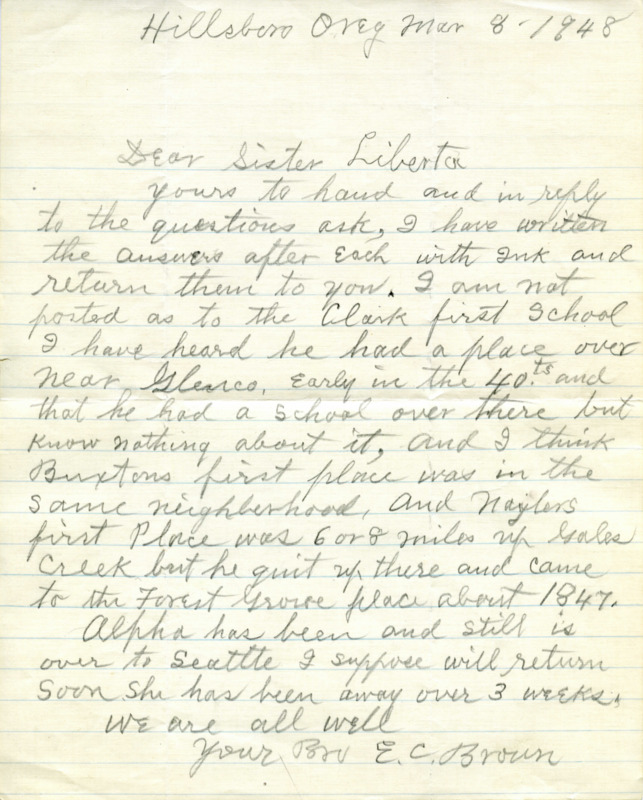 Hillsboro Oreg Mar 8 - 1948
Dear Sister Liberta
yours to hand and in reply
to the questions ask, I have written
the answers after Each with Ink and
return them to you. I am not
posted as to the Clark first School
I have heard he had a place over
near Glenco, Early in the 40.ts and
that he had a School over there but
know nothing about it, and I think
Buxtons first place was in the
same neighborhood, And Naylers
first Place was 6 or 8 miles up Gales
Creek but he quit up there and came
to the Forest Grove place about 1847.
Alpha has been and still is
over to Seattle I suppose will return
Soon She has been away over 3 weeks.
We are all well
Your Bro E. C. Brown